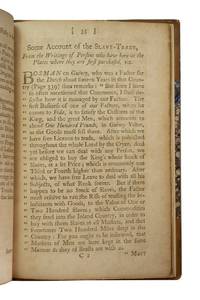 [ 35 ]
SOME ACCOUNT of the SLAVE-TRADE,
From the Writings of Persons who have been at the
Places where they are first purchased, viz.
BOSMAN on Guiney, who was a Factor for
the Dutch about sixteen Years in that Coun-
try (Page 339) thus remarks: "But since I have
" so often mentioned that Commerce, I shall de-
" scribe how it is managed by our Factors. The
" first Business of one of our Factors, when he
" comes to Fida, is to satisfy the Customs of the
" King, and the great Men, which amounts to
" about One Hundred Pounds, in Guiney Value,
" as the Goods must sell there. After which we
" have free Licence to trade, which is published
" throughout the whole Land by the Cryer. And
" yet before we can deal with any Person, we
" are obliged to buy the King's whole Stock of
" Slaves, at a set Price; which is commonly one
" Third or Fourth higher than ordinary. After
" which, we have free Leave to deal with all his
" Subjects, of what Rank soever. But if there
" happen to be no Stock of Slaves, the Factor
" must resolve to run the Risk of trusting the In-
" habitants with Goods, to the Value of One or
" Two Hundred Slaves; which Commodities
" they send into the Inland Country, in order to
" buy with them Slaves at all Markets, and that
" sometimes Two Hundred Miles deep in the
" Country: For you ought to be informed, that
" Markets of Men are here kept in the same
" Manner as those of Beasts are with us.
C 2
" Most